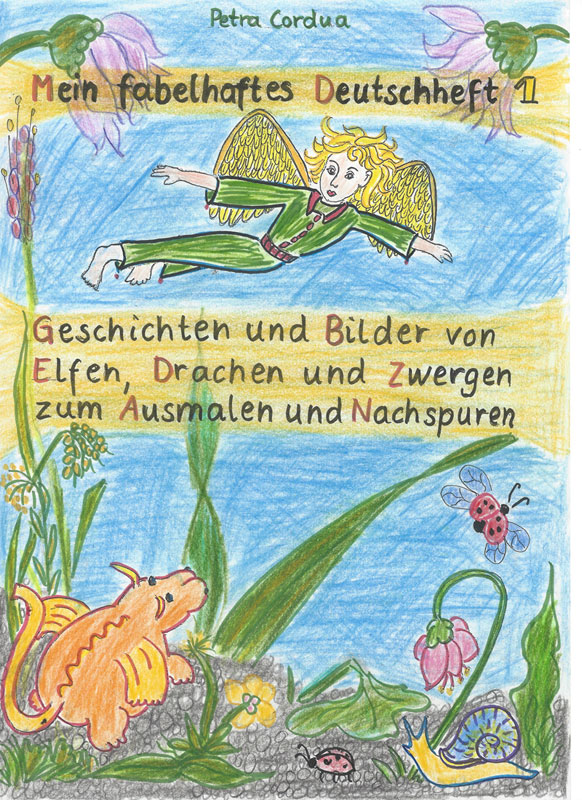 Petra Cordua
Mein fabelhaftes Deutschheft 1
Geschichten und Bilder von
Elfen, Drachen und Zwergen
zum Ausmalen und Nachspuren